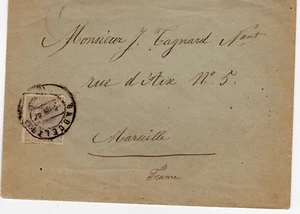 Monsieur J. Tagnard
rue d'Aix Nº 5.
Marseille
France